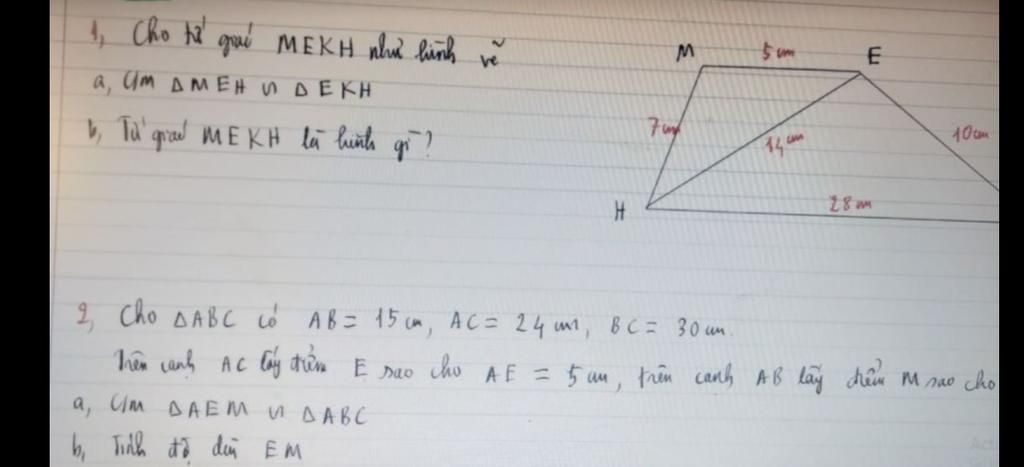 1, Cho tứ giác MEKH như hình vẽ
a, C/m ΔMEH ∽ ΔEKH
b, Tứ giác MEKH là hình gì?
M 5cm E
7cm 14cm 10cm
H 28cm
2, Cho ΔABC có AB = 15cm, AC = 24cm, BC = 30cm.
Trên cạnh AC lấy điểm E sao cho AE = 5cm, trên cạnh AB lấy điểm M sao cho
a, C/m ΔAEM ∽ ΔABC
b, Tính độ dài EM